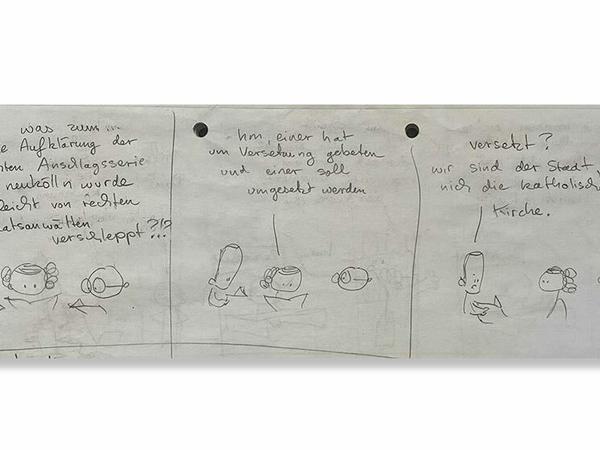 was zum...
e Aufklärung der
ten Anschlagsserie
neukölln wurde
leicht von rechten
aatsanwälten
verschleppt?!?
hm, einer hat
um Versetzung gebeten
und einer soll
umgesetzt werden
versetzt?
wir sind der Stadt
nich die katholisch
Kirche.